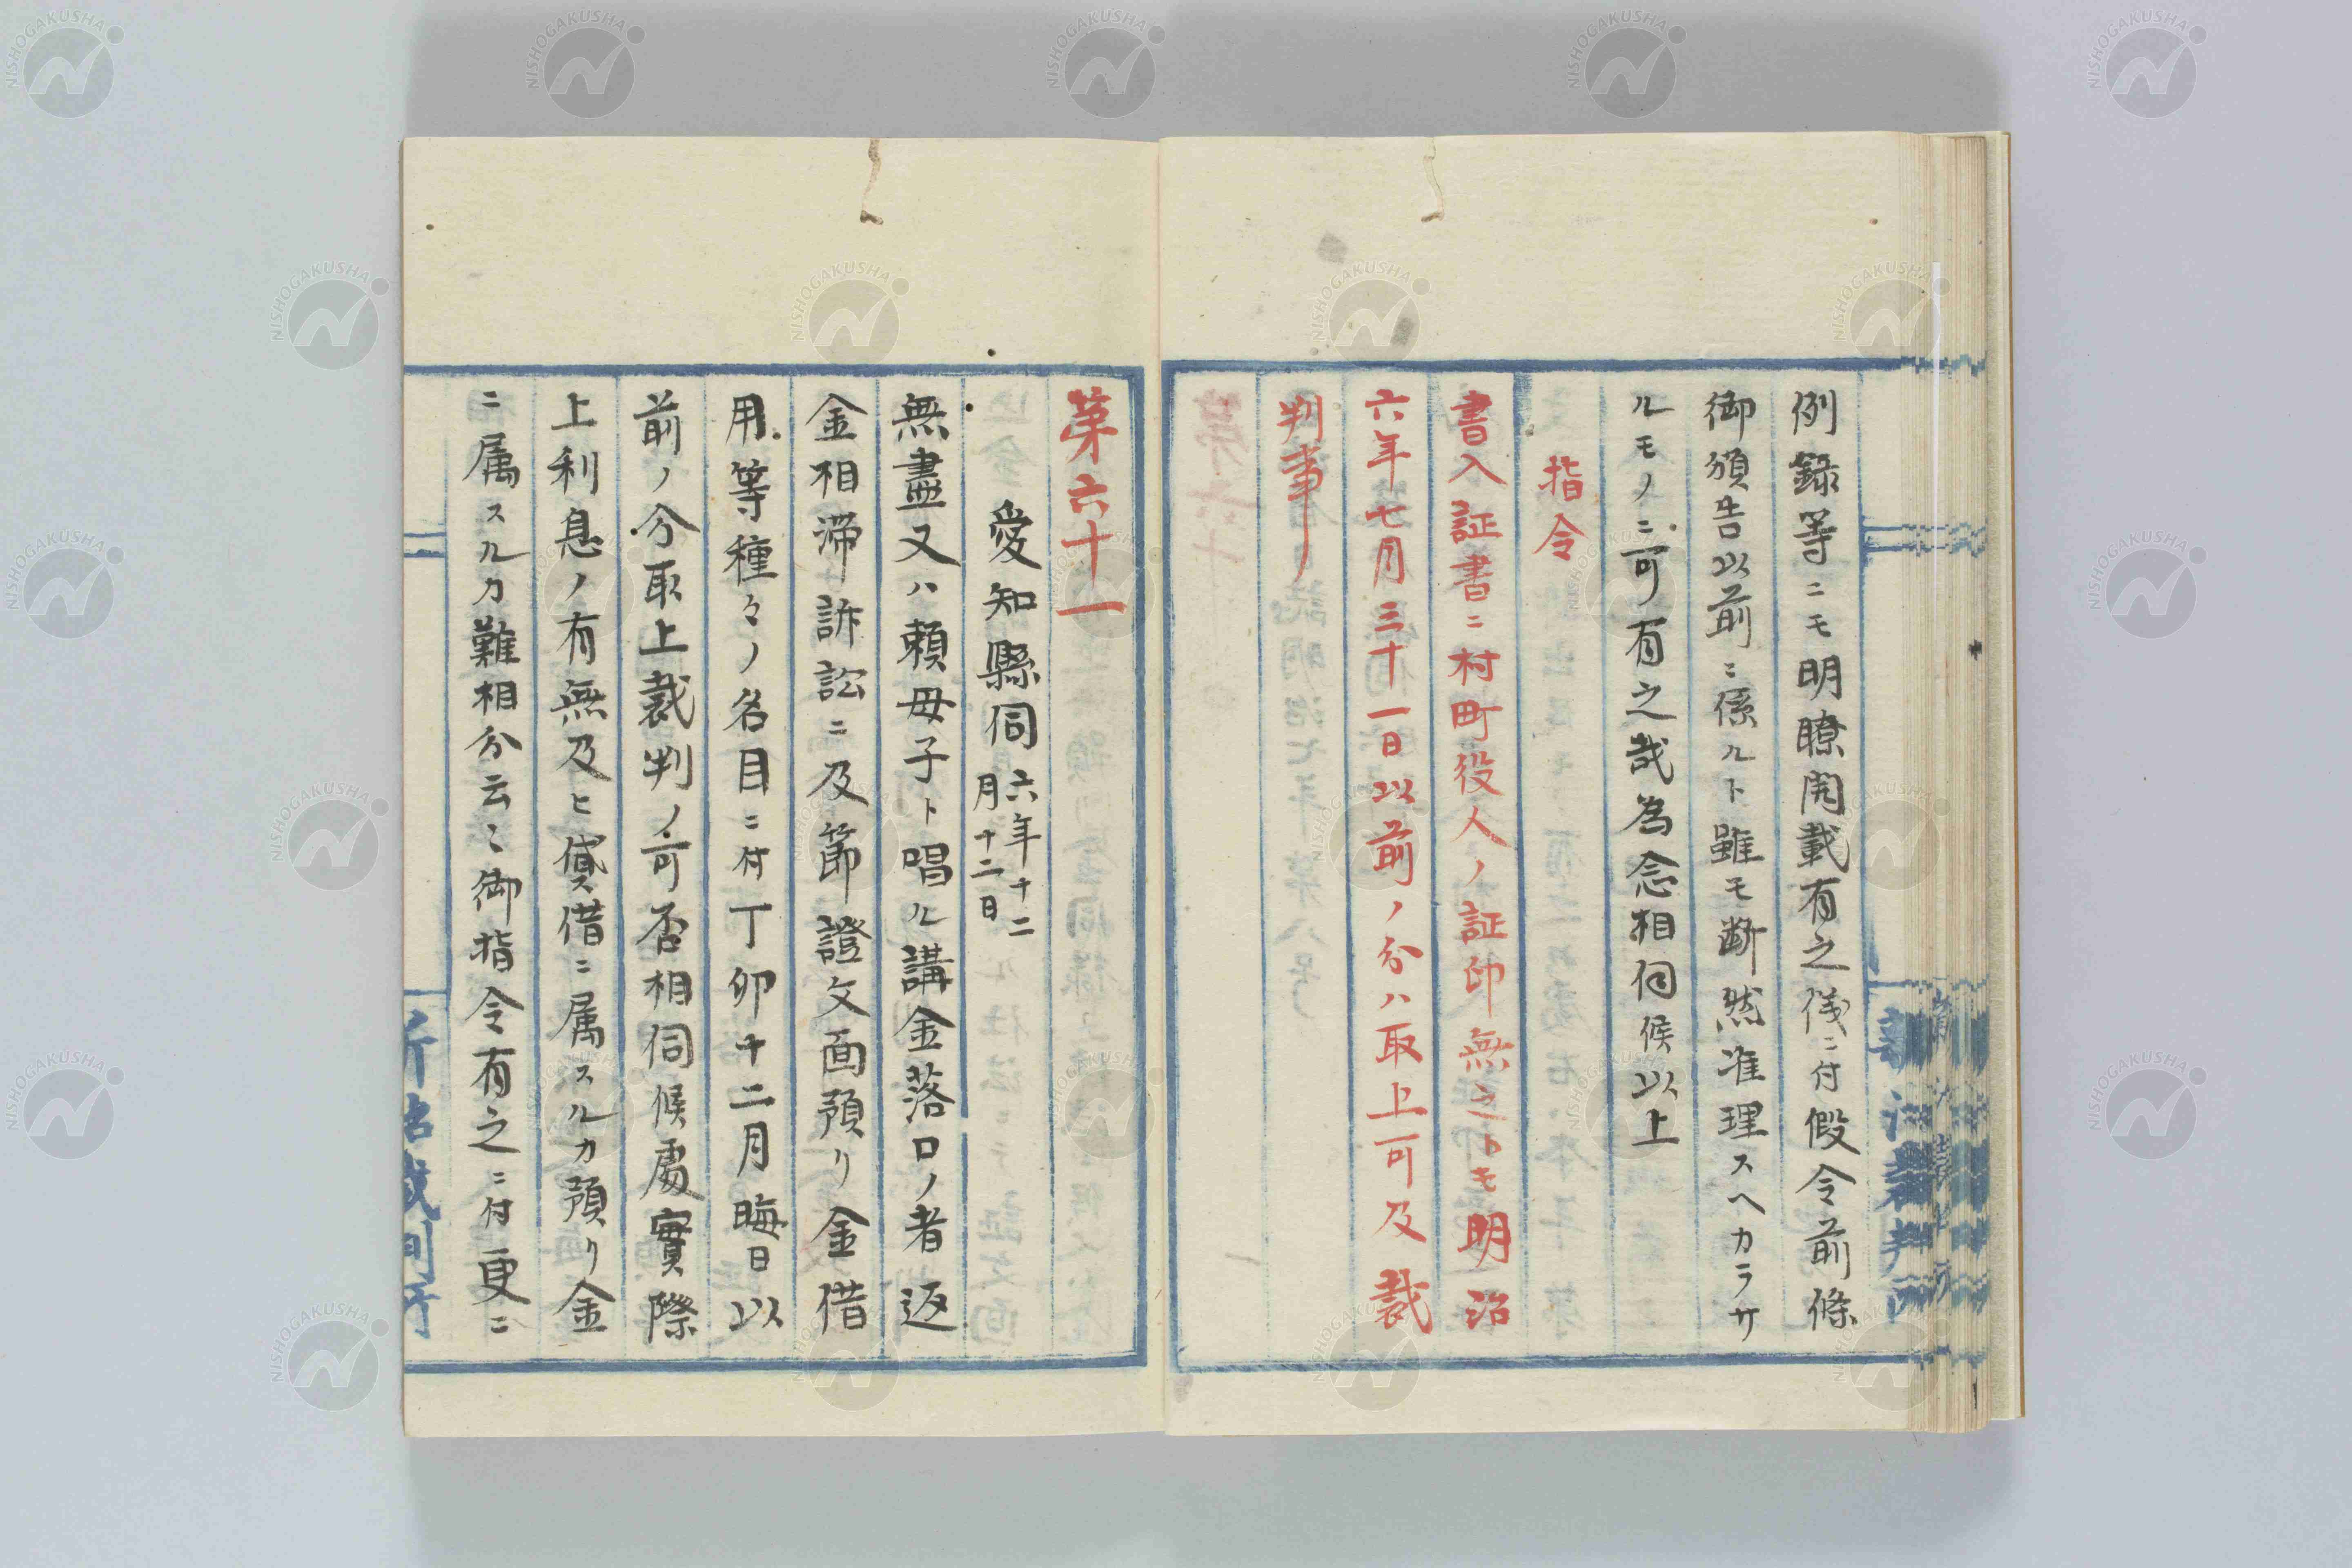 例録等ニモ明瞭開載有之儀ニ付假令前條
御頒告以前ニ係ルト雖モ断然准理スヘカラサ
ルモノニ可有之哉為念相伺候以上
指令
書入証書ニ村町役人ノ証印無之トモ明治
六年七月三十一日以前ノ分ハ取上可及裁
判事
第六十一
愛知縣伺 六年十二
月十二日
無盡又ハ頼母子ト唱ル講金落口ノ者返
金相滞訴訟ニ及節證文面預リ金借
用等種々ノ名目ニ付丁卯十二月晦日以
前ノ分取上裁判ノ可否相伺候處實際
上利息ノ有無及ヒ貸借ニ属スルカ預リ金
ニ属スルカ難相分云々御指令有之ニ付更ニ
NISHOGAKUSHA